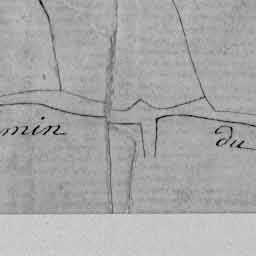 min du